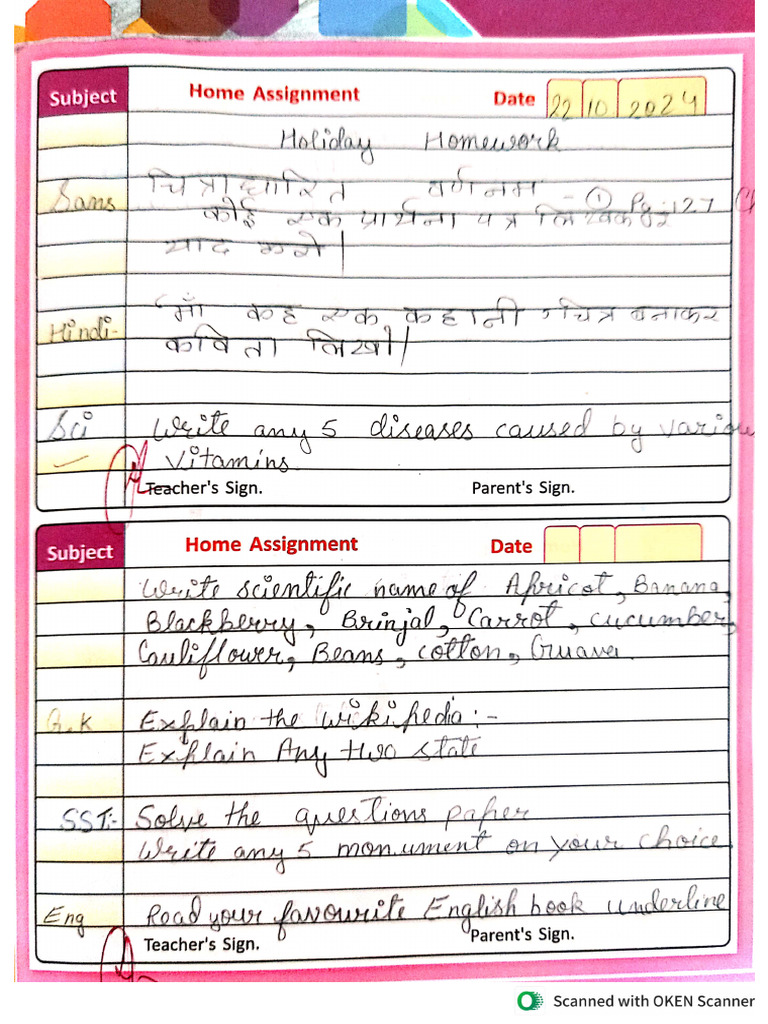 Subject Home Assignment Date 22 10 2024
Holiday Homework
Sans चित्राधारित वर्णनम - ① Pg: 127
कोई एक प्रार्थना पत्र लिखकर
याद करो|
Hindi- "माँ कह एक कहानी चित्र बनाकर
कविता लिखो|
Sci Write any 5 diseases caused by
vitamins
Teacher's Sign. Parent's Sign.
Subject Home Assignment Date
Write scientific name of Apricot, Banana,
Blackberry, Brinjal, Carrot, cucumber,
Cauliflower, Beans, cotton, Guava.
G.K Explain the wikipedia:-
Explain Any two state
SST:- Solve the questions paper
Write any 5 monument on your choice
Eng Read your favourite English book underline
Teacher's Sign. Parent's Sign.
Scanned with OKEN Scanner